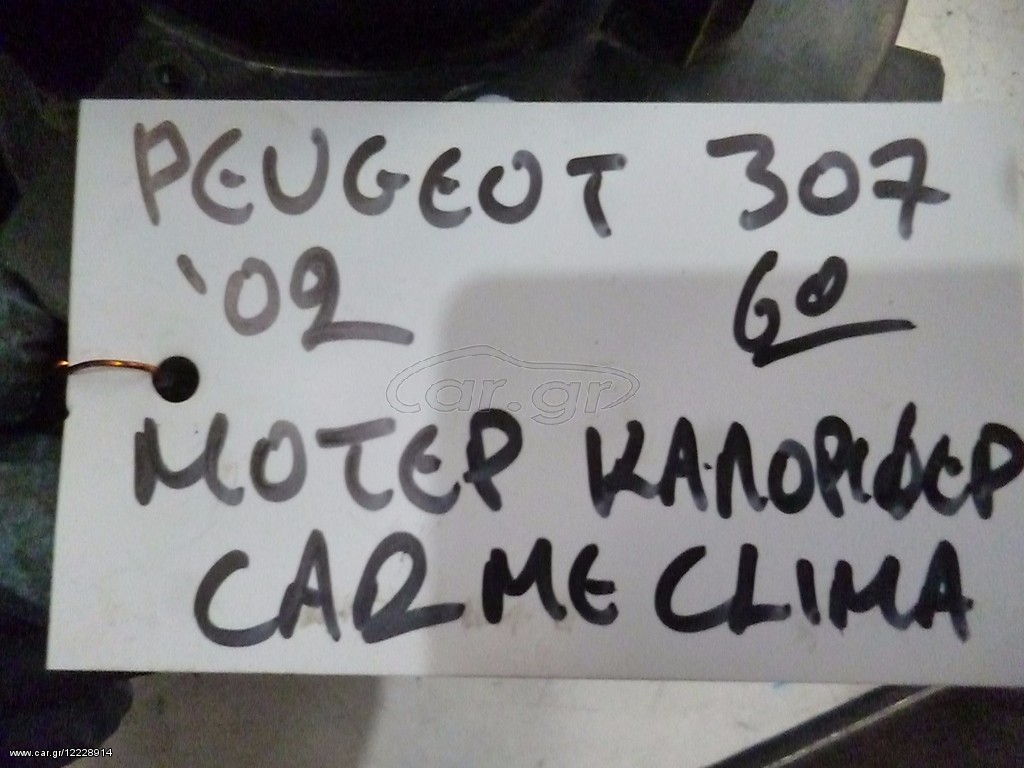 PEUGEOT 307
'02 60
ΜΟΤΕΡ ΚΑΛΟΡΙΦΕΡ
CAR ΜΕ CLIMA
car.gr
www.car.gr/12228914